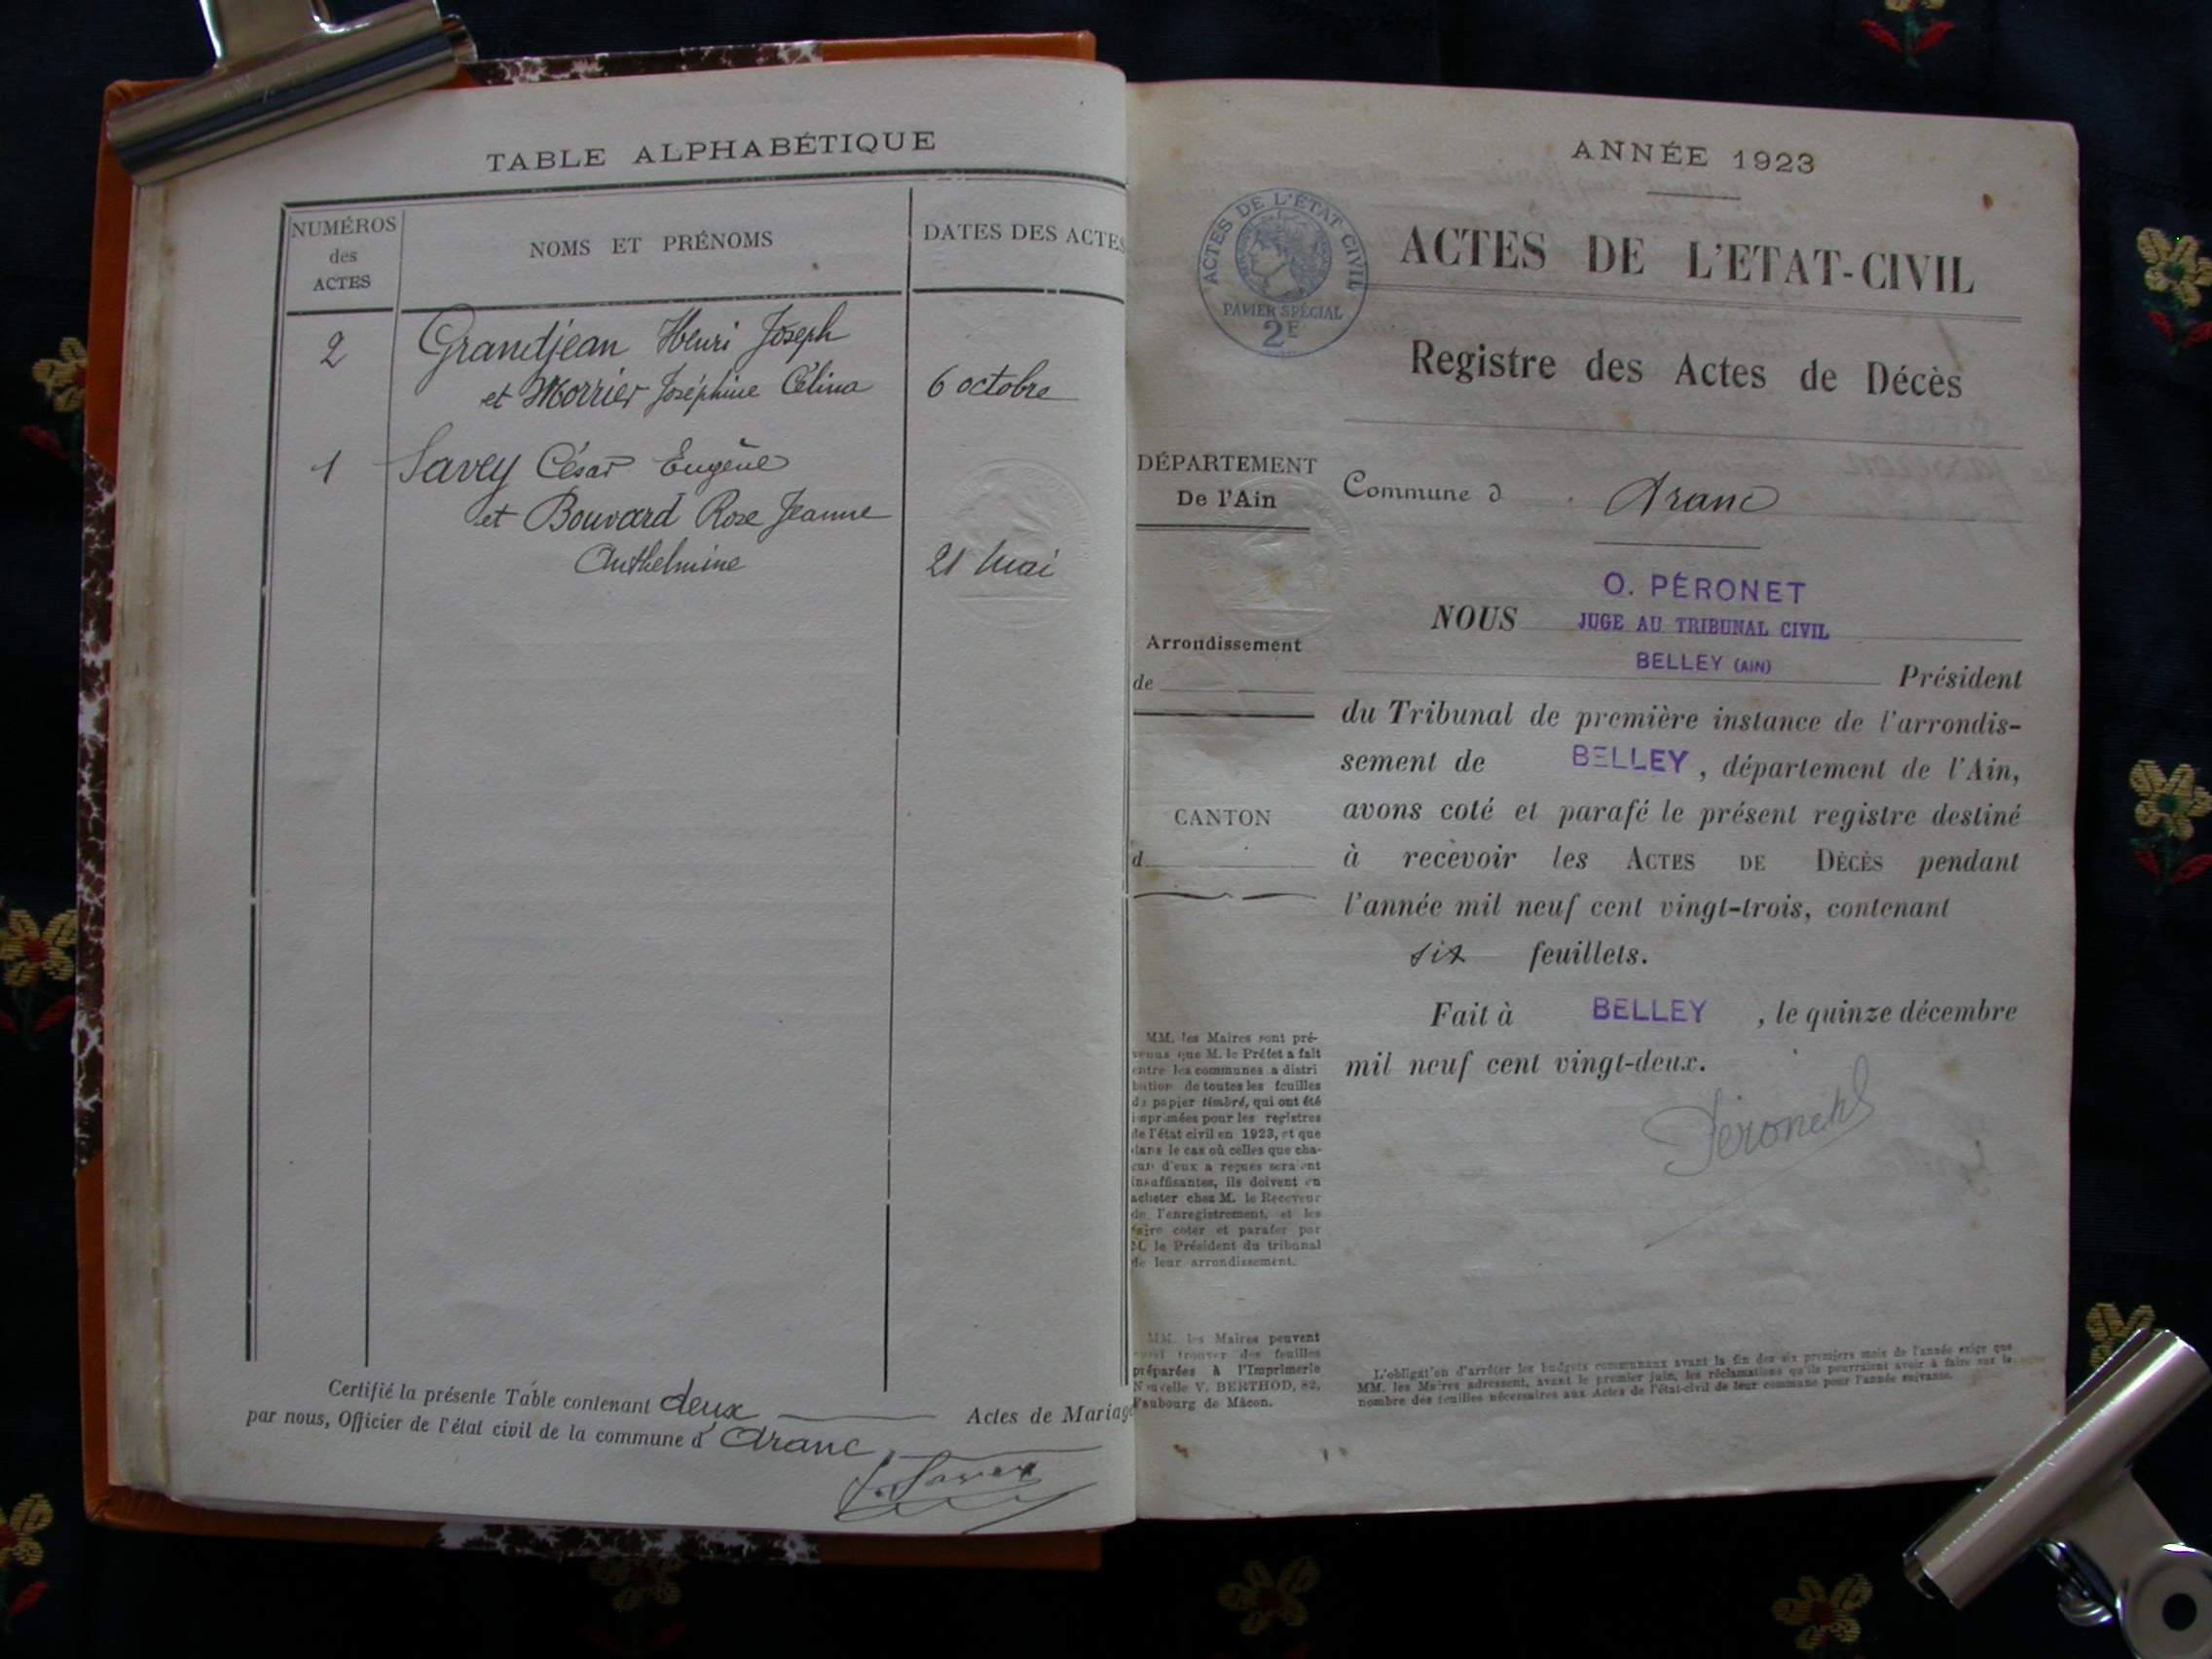 TABLE ALPHABÉTIQUE
NUMÉROS
des
ACTES
NOMS ET PRÉNOMS
DATES DES ACTES
2 Grandjean Henri Joseph
et Morrier Joséphine Célina 6 octobre
1 Savey César Eugène
et Bouvard Rose Jeanne
Anthelmine 21 Mai
Certifié la présente Table contenant deux Actes de Mariag
par nous, Officier de l'état civil de la commune d'Aranc
ANNÉE 1923
ACTES DE L'ÉTAT CIVIL
PAPIER SPÉCIAL
2F
ACTES DE L'ETAT-CIVIL
Registre des Actes de Décès
DÉPARTEMENT
De l'Ain
Arrondissement
de
CANTON
d
MM. les Maires sont pré-
venus que M. le Préfet a fait
entre les communes a distri
bution de toutes les feuilles
de papier timbré, qui ont été
imprimées pour les registres
de l'état civil en 1923, et que
dans le cas où celles que cha-
cun d'eux a reçues seraient
insuffisantes, ils doivent en
acheter chez M. le Receveur
de l'enregistrement, et les
faire coter et parafer par
M. le Président du tribunal
de leur arrondissement.
MM. les Maires peuvent
aussi trouver des feuilles
préparées à l'Imprimerie
Nouvelle V. BERTHOD, 82,
Faubourg de Mâcon.
Commune d Aranc
O. PÉRONET
NOUS JUGE AU TRIBUNAL CIVIL
BELLEY (AIN)
Président
du Tribunal de première instance de l'arrondis-
sement de BELLEY, département de l'Ain,
avons coté et parafé le présent registre destiné
à recevoir les ACTES DE DÉCÈS pendant
l'année mil neuf cent vingt-trois, contenant
six feuillets.
Fait à BELLEY, le quinze décembre
mil neuf cent vingt-deux.
L'obligation d'arrêter les budgets communaux avant la fin des six premiers mois de l'année exige que
MM. les Maires adressent, avant le premier juin, les réclamations qu'ils pourraient avoir à faire sur le
nombre des feuilles nécessaires aux Actes de l'état-civil de leur commune pour l'année suivante.